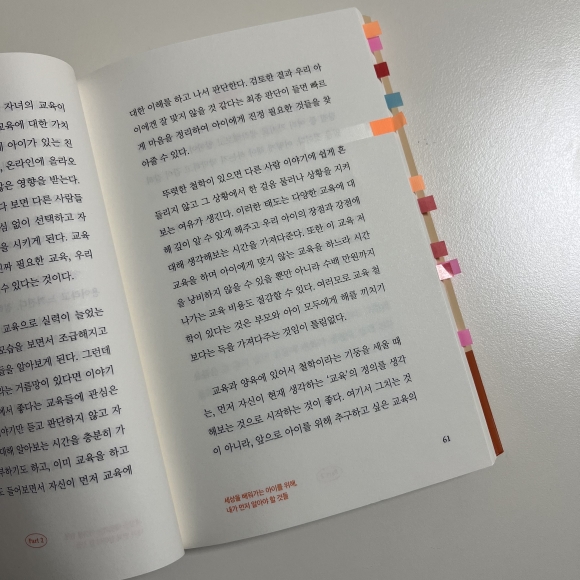 자녀의 교육이
교육에 대한 가치
아이가 있는 친
온라인에 올라오
많은 영향을 받는다.
보면 다른 사람들
없이 선택하고 자
을 시키게 된다. 교육
진짜 필요한 교육, 우리
수 있다는 것이다.
교육으로 실력이 늘었는
모습을 보면서 조급해지고
들을 알아보게 된다. 그런데
라는 거름망이 있다면 이야기
에서 좋다는 교육들에 관심은
야기만 듣고 판단하지 않고 자
대해 알아보는 시간을 충분히 가
부하기도 하고, 이미 교육을 하고
도 들어보면서 자신이 먼저 교육에
Part 2
대한 이해를 하고 나서 판단한다. 검토한 결과 우리 아
이에겐 잘 맞지 않을 것 같다는 최종 판단이 들면 빠르
게 마음을 정리하여 아이에게 진정 필요한 것들을 찾
아줄 수 있다.
뚜렷한 철학이 있으면 다른 사람 이야기에 쉽게 흔
들리지 않고 그 상황에서 한 걸음 물러나 상황을 지켜
보는 여유가 생긴다. 이러한 태도는 다양한 교육에 대
해 깊이 알 수 있게 해주고 우리 아이의 장점과 강점에
대해 생각해보는 시간을 가져다준다. 또한 이 교육 저
교육을 하며 아이에게 맞지 않는 교육을 하느라 시간
을 낭비하지 않을 수 있을 뿐만 아니라 수백 만원까지
나가는 교육 비용도 절감할 수 있다. 여러모로 교육 철
학이 있다는 것은 부모와 아이 모두에게 해를 끼치기
보다는 득을 가져다주는 것임이 틀림없다.
교육과 양육에 있어서 철학이라는 기둥을 세울 때
는, 먼저 자신이 현재 생각하는 ‘교육’의 정의를 생각
해보는 것으로 시작하는 것이 좋다. 여기서 그치는 것
이 아니라, 앞으로 아이를 위해 추구하고 싶은 교육의
61
세상을 배워가는 아이를 위해,
내가 먼저 알아야 할 것들